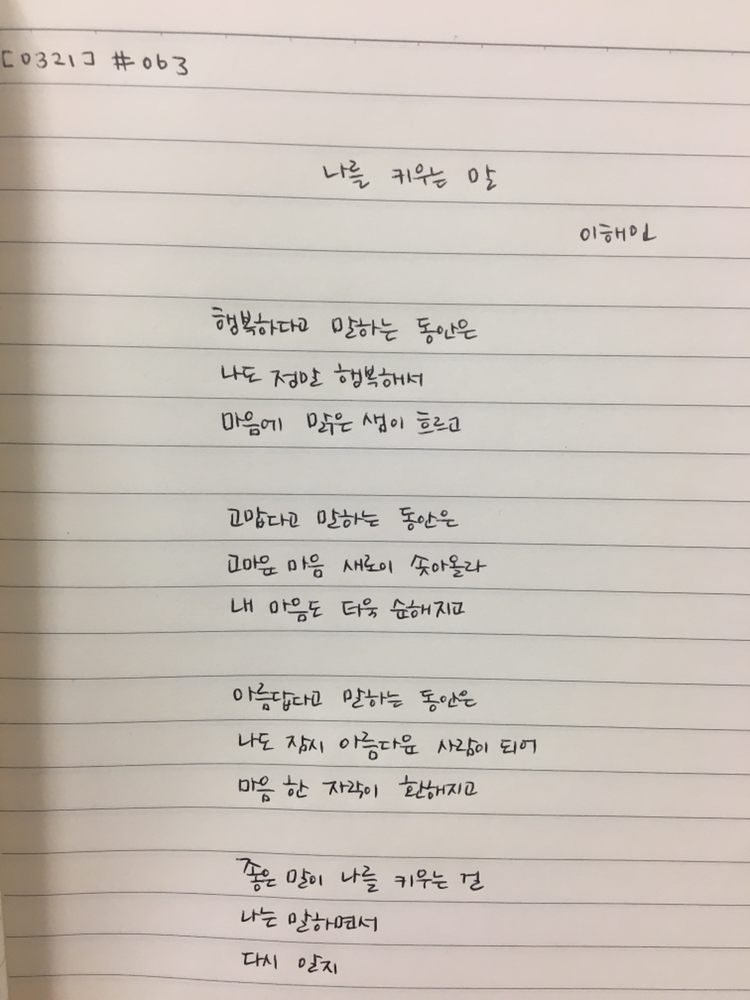 [0321] #063
나를 키우는 말
이해인
행복하다고 말하는 동안은
나도 정말 행복해서
마음에 맑은 샘이 흐르고
고맙다고 말하는 동안은
고마운 마음 새로이 솟아올라
내 마음도 더욱 순해지고
아름답다고 말하는 동안은
나도 잠시 아름다운 사람이 되어
마음 한 자락이 환해지고
좋은 말이 나를 키우는 걸
나는 말하면서
다시 알지